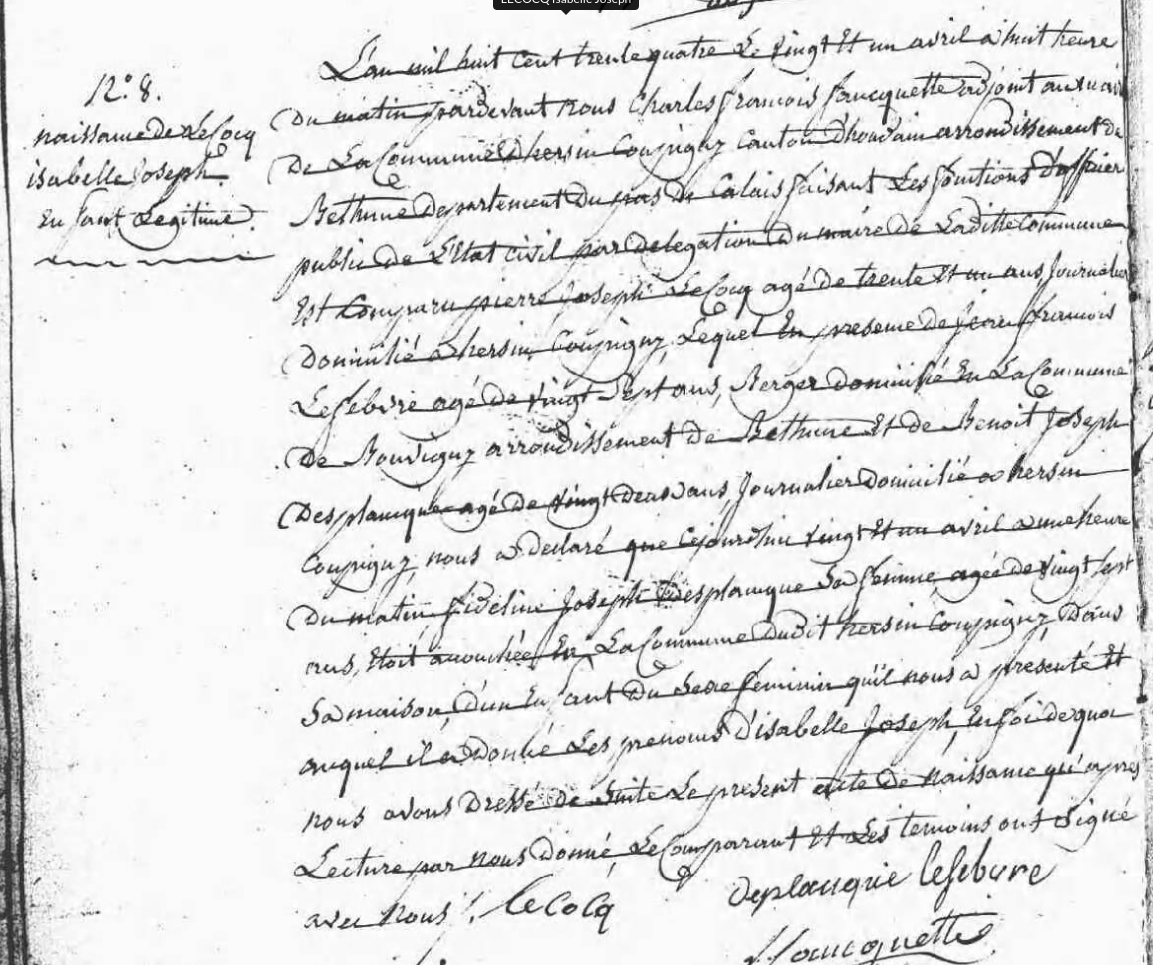 LECOCQ Isabelle Joseph
N° 8.
naissance de LeCocq
isabelle Joseph
Enfant Legitime.
L'an mil huit Cent trente quatre Le vingt Et un avril a huit heure
Du matin pardevant nous Charles francois faucquette adjoint au maire
De La Commune D'hersin Coupigny Canton D'houdain arrondissement de
Bethune Departement Du pas De Calais faisant Les fonctions D'officier
public De L'Etat civil par delegation Du maire de Laditte Commune
Est Comparu pierre Joseph LeCocq agé De trente Et un ans Journalier
Domicilié a hersin Coupigny, Lequel En presence de Jean francois
Lefebvre agé De vingt Sept ans, Berger domicilié En La Commune
De Bouvigny arrondissement de Bethune Et de Benoit Joseph
Desplancque agé De vingt deux ans, Journalier Domicilié a hersin
Coupigny nous a declaré que Cejourd'hui vingt Et un avril a une heure
Du matin fideline Joseph Desplancque Sa femme, agée De vingt Sept
ans, Etoit accouchée En La Commune Dudit hersin Coupigny, Dans
Sa maison, D'un Enfant Du Sexe feminin qu'il nous a presenté Et
auquel il a Donné Les prenoms D'isabelle Joseph, En foi de quoi
nous avons Dressé de Suite Le present acte De Naissance qu'apres
Lecture par Nous Donné, Le Comparant Et Les temoins ont Signé
avec Nous /. LeCocq deplancque lefebvre
faucquette